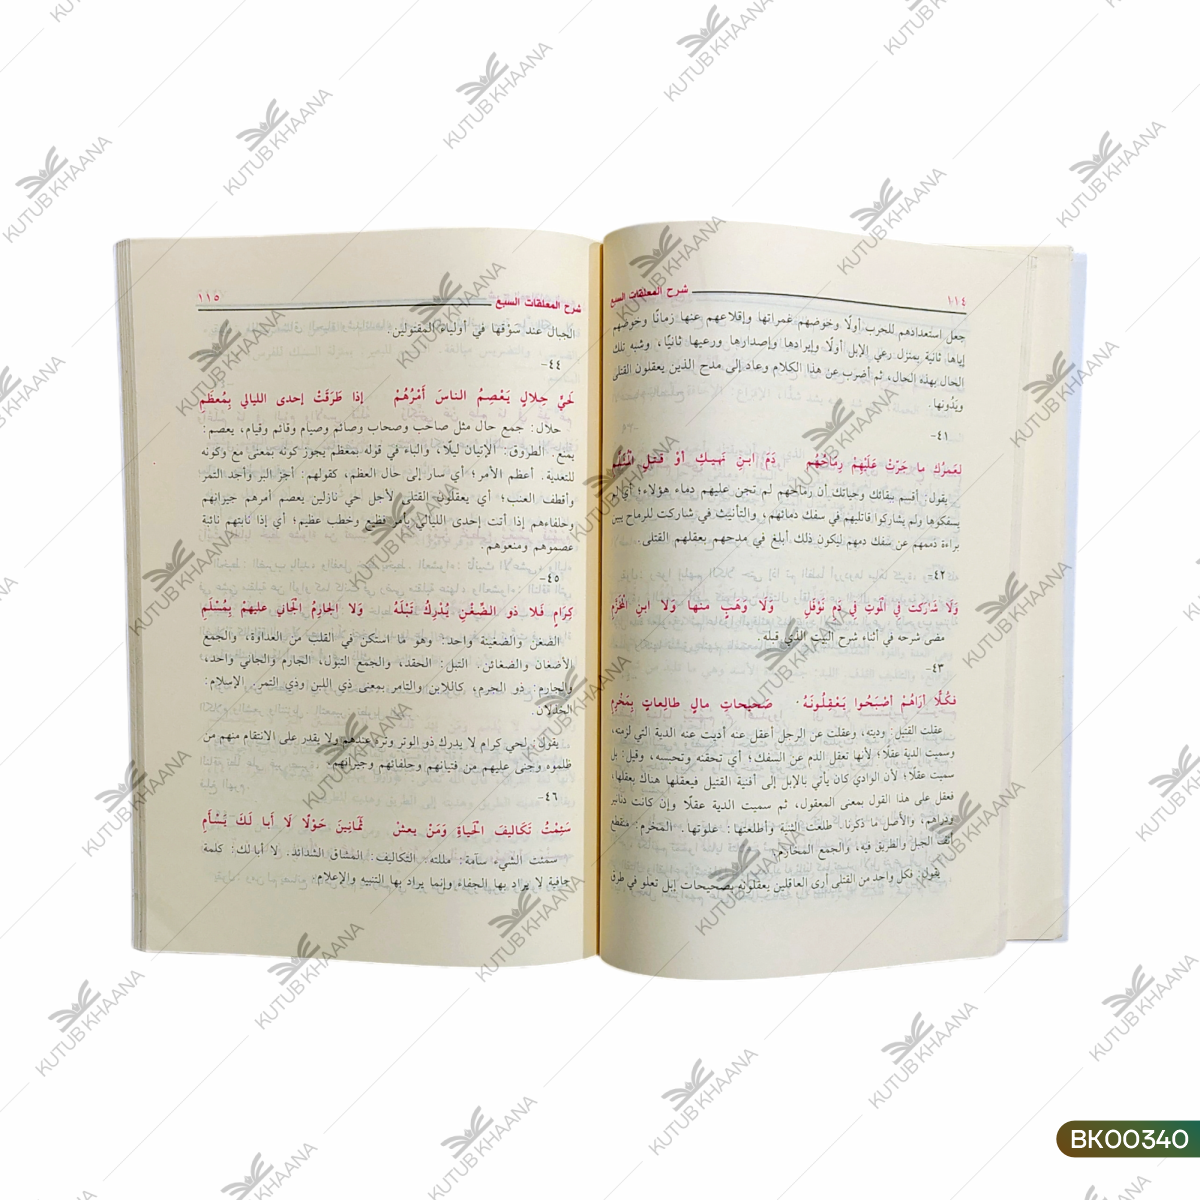 ١١٤
شرح المعلقات السبع
جعل استعدادهم للحرب أولًا وخوضهم غمراتها وإقلاعهم عنها زمانًا وخوضهم
إياها ثانية بمنزل رعي الإبل أولًا وإيرادها وإصدارها ورعيها ثانيًا، وشبه تلك
الحال بهذه الحال، ثم أضرب عن هذا الكلام وعاد إلى مدح الذين يعقلون القتلى
ويَدُونها.
-٤١
لِعَمرُك ما جَرّتْ عَلَيْهِمْ رِماحُهُم دَمَ ابنِ نَهيكٍ أَوْ قَتيلِ
يقول: أقسم ببقائك وحياتك أن رماحهم لم تجن عليهم دماء هؤلاء؛ أي لم
يسفكوها ولم يشاركوا قاتليهم في سفك دمائهم، والتأنيث في شاركت للرماح يبين
براءة ذممهم عن سفك دمهم ليكون ذلك أبلغ في مدحهم بعقلهم القتلى.
-٤٢
وَلَا شارَكَت في الْمَوتِ في دَمِ نَوْفَلٍ وَلَا وَهَبٍ منها وَلا ابنِ الْمُخَزَّمِ
مضى شرحه في أثناء شرح البيت الذي قبله.
-٤٣
فكُلًّا أرَاهُمْ أصْبَحُوا يَعْقِلُونَهُ صَحيحَاتِ مالٍ طالِعاتٍ بِمَخْرِمِ
عقلت القتيل: وديته، وعقلت عن الرجل أعقل عنه أديت عنه الدية التي لزمته،
وسميت الدية عقلًا؛ لأنها تعقل الدم عن السفك؛ أي تحقنه وتحبسه، وقيل: بل
سميت عقلًا؛ لأن الوادي كان يأتي بالإبل إلى أفنية القتيل فيعقلها هناك بعقلها،
فعقل على هذا القول بمعنى المعقول، ثم سميت الدية عقلًا وإن كانت دنانير
ودراهم، والأصل ما ذكرنا. طلعت الثنية وأطلعتها: علوتها. المخرم: منقطع
أنف الجبل والطريق فيه، والجمع المخارم.
يقول: فكل واحد من القتلى أرى العاقلين يعقلونه بصحيحات إبل تعلو في طرق
شرح المعلقات السبع
١١٥
الجبال عند سوقها في أولياء المقتولين.
-٤٤
لَحَيٍّ حِلالٍ يَعْصِمُ الناسَ أَمْرُهُمْ إذا طَرَقَتْ إحدى الليالي بِمُعظَمِ
حلال: جمع حال مثل صاحب وصحاب وصائم وصيام وقائم وقيام، يعصم:
يمنع. الطروق: الإتيان ليلًا، والباء في قوله بمعظم يجوز كونه بمعنى مع وكونه
للتعدية. أعظم الأمر؛ أي سار إلى حال العظم، كقولهم: أجز البر وأجد التمر
وأقطف العنب؛ أي يعقلون القتلى لأجل حي نازلين يعصم أمرهم جيرانهم
وحلفاءهم إذا أتت إحدى الليالي بأمر فظيع وخطب عظيم؛ أي إذا نابتهم نائبة
عصموهم ومنعوهم.
-٤٥
كِرَامٍ فَلا ذو الضِّغْنِ يُدْرِكُ تَبْلَهُ وَلا الجارِمُ الْجَاني عليهِمْ بِمُسْلَمِ
الضغن والضغينة واحد: وهو ما استكن في القلب من العداوة، والجمع
الأضغان والضغائن. التبل: الحقد، والجمع التبول، الجارم والجاني واحد،
والجارم: ذو الجرم، كاللابن والتامر بمعنى ذي اللبن وذي التمر. الإسلام:
الخذلان.
يقول: لحي كرام لا يدرك ذو الوتر وتره عندهم ولا يقدر على الانتقام منهم من
ظلموه وجنى عليهم من فتيانهم وحلفائهم وجيرانهم.
-٤٦
سَئِمْتُ تَكاليفَ الْحَياةِ وَمَنْ يعشْ ثَمَانِينَ حَوْلًا لَا أَبا لَكَ يَسْأَمِ
سممت الشي سآمة: مللته. التكاليف: المشاق الشدائد. لا أبا لك: كلمة
جافية لا يراد بها الجفاء وإنما يراد بها التنبيه والإعلام.
KUTUB KHAANA
BK00340